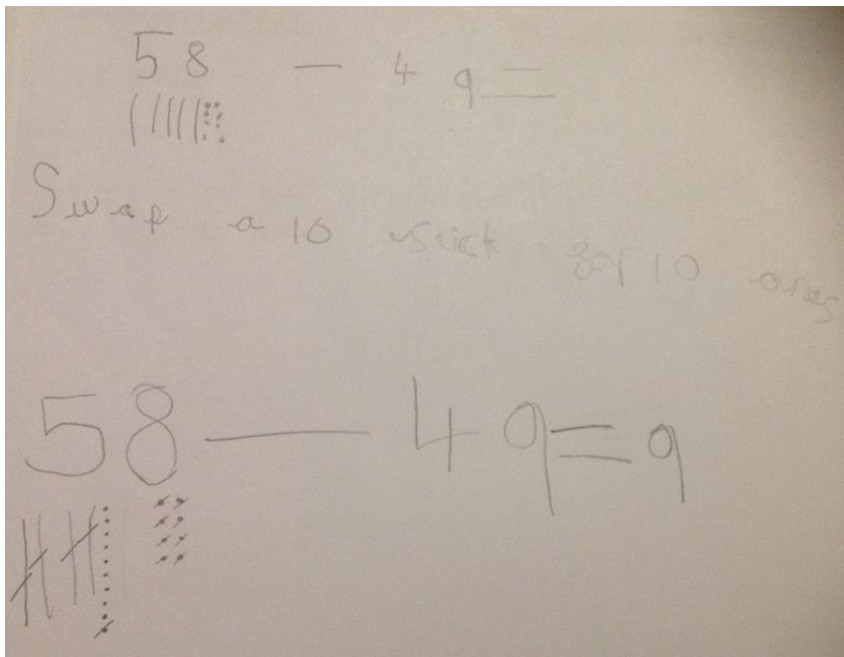 58 — 49=
Swap a 10 stick for 10 ones
58 — 49=9